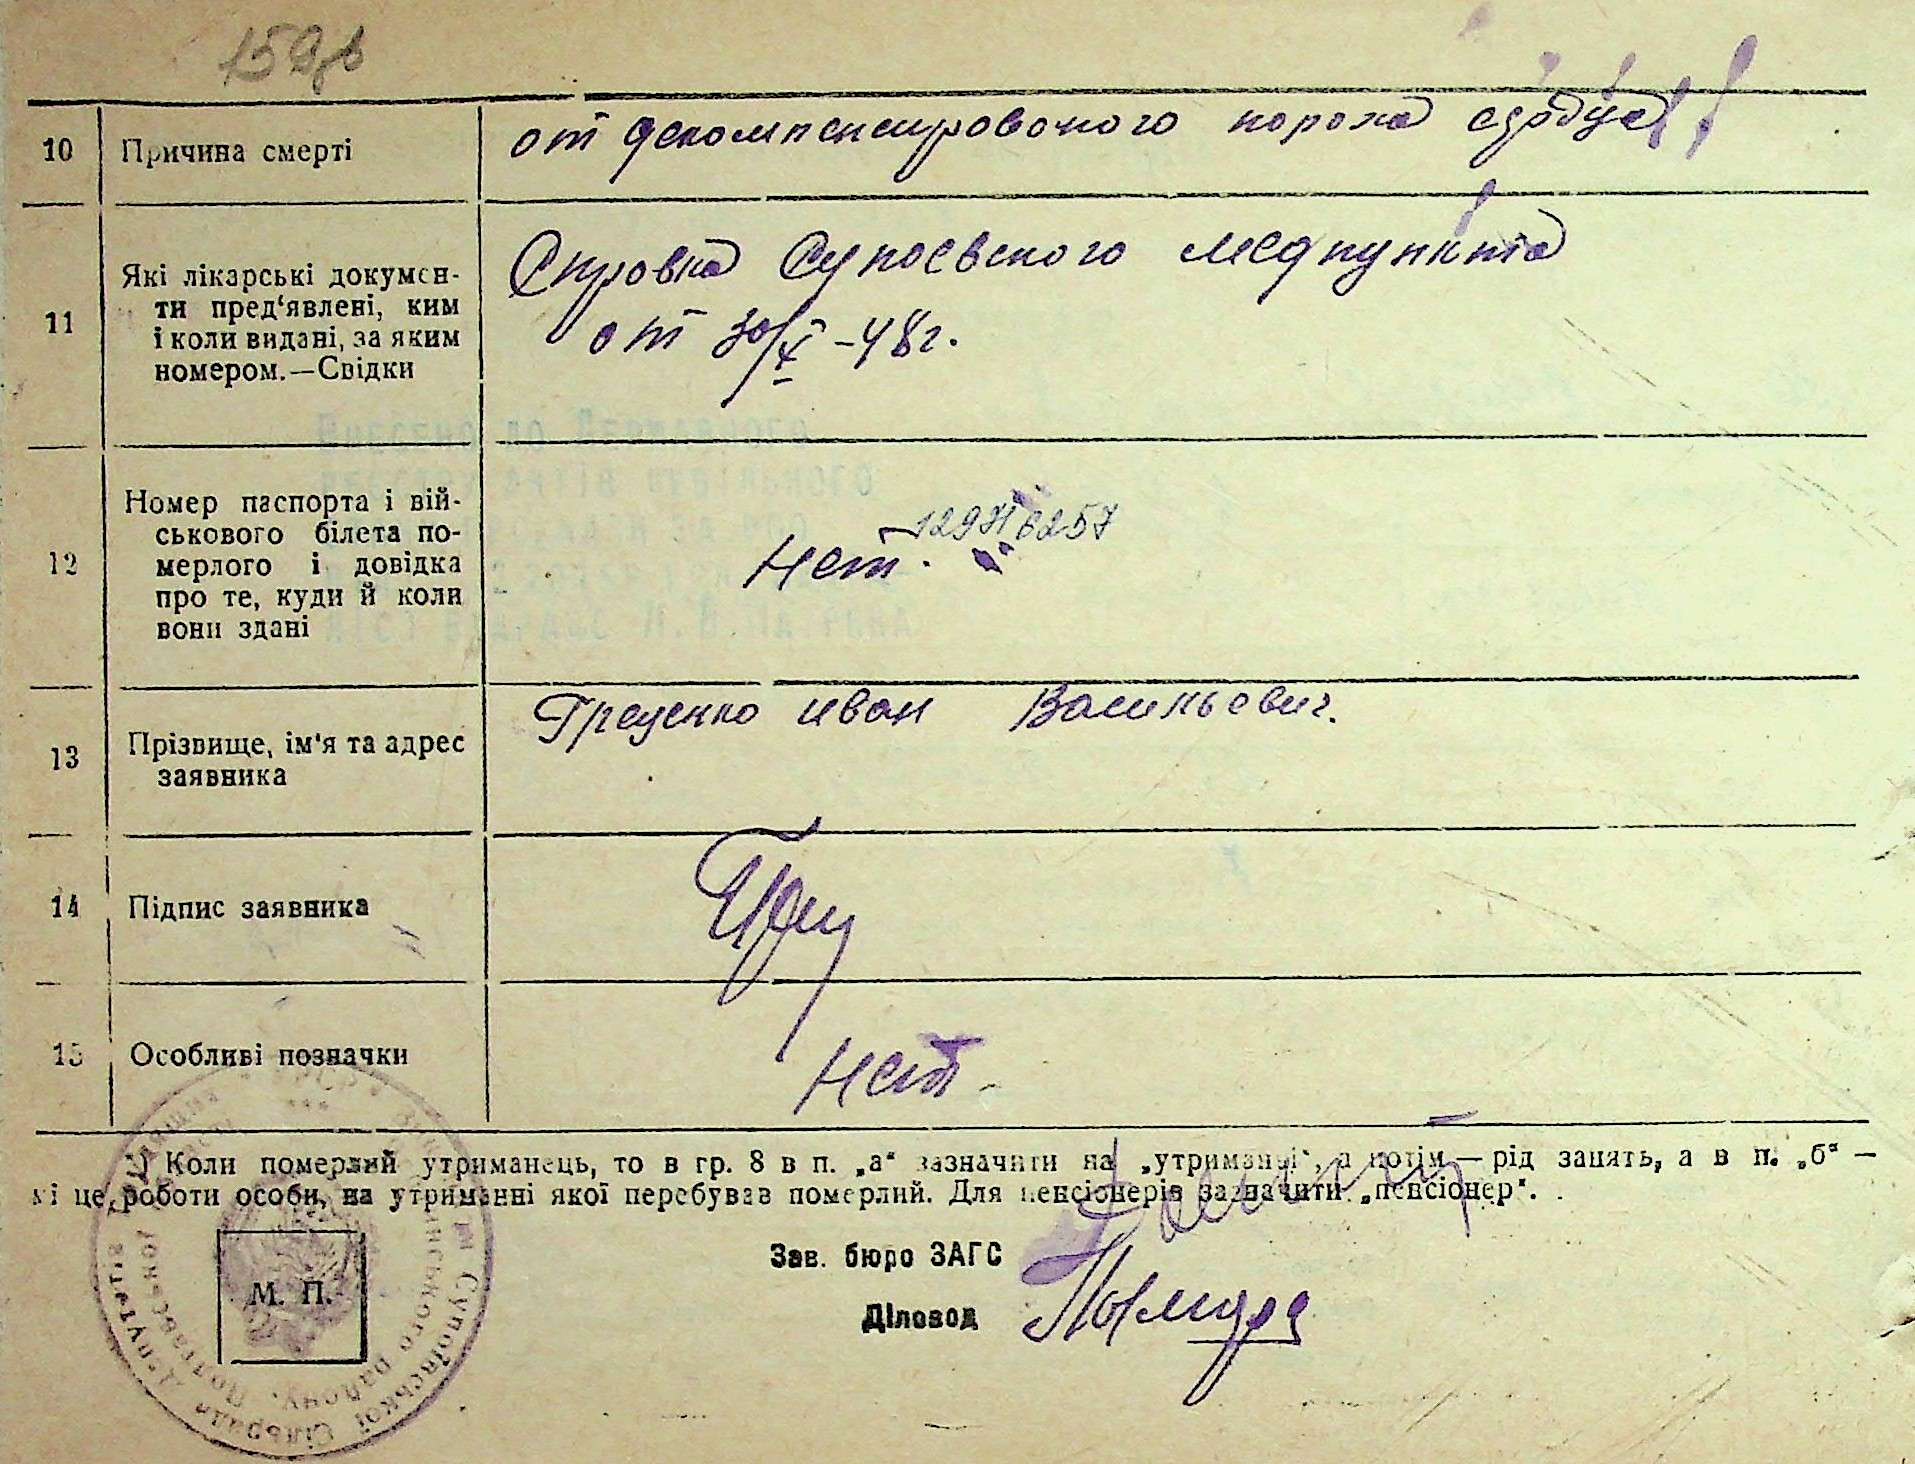 10 Причина смерті
от декомпенсировоного порока
11 Які лікарські докумен-
ти пред‘явлені, ким
і коли видані, за яким
номером.—Свідки
Справка Супоевского медпункта
от 30/X -48г.
12 Номер паспорта і вій-
ськового білета по-
мерлого і довідка
про те, куди й коли
вони здані
Нет.
13 Прізвище, ім‘я та адрес
заявника
Греценко иван Васильевич.
14 Підпис заявника
15 Особливі позначки
Нет.
*) Коли померлий утриманець, то в гр. 8 в п. „а“ зазначити на „утриманні“, а потім — рід занять, а в п. „б“ —
це роботи особи, на утриманні якої перебував померлий. Для пенсіонерів зазначити „пенсіонер“.
Зав. бюро ЗАГС
М. П.
Діловод